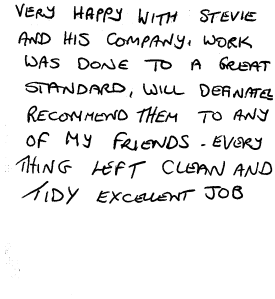 VERY HAPPY WITH STEVIE
AND HIS COMPANY. WORK
WAS DONE TO A GREAT
STANDARD, WILL DEFNATEL
RECOMMEND THEM TO ANY
OF MY FRIENDS - EVERY
THING LEFT CLEAN AND
TIDY EXCELLENT JOB